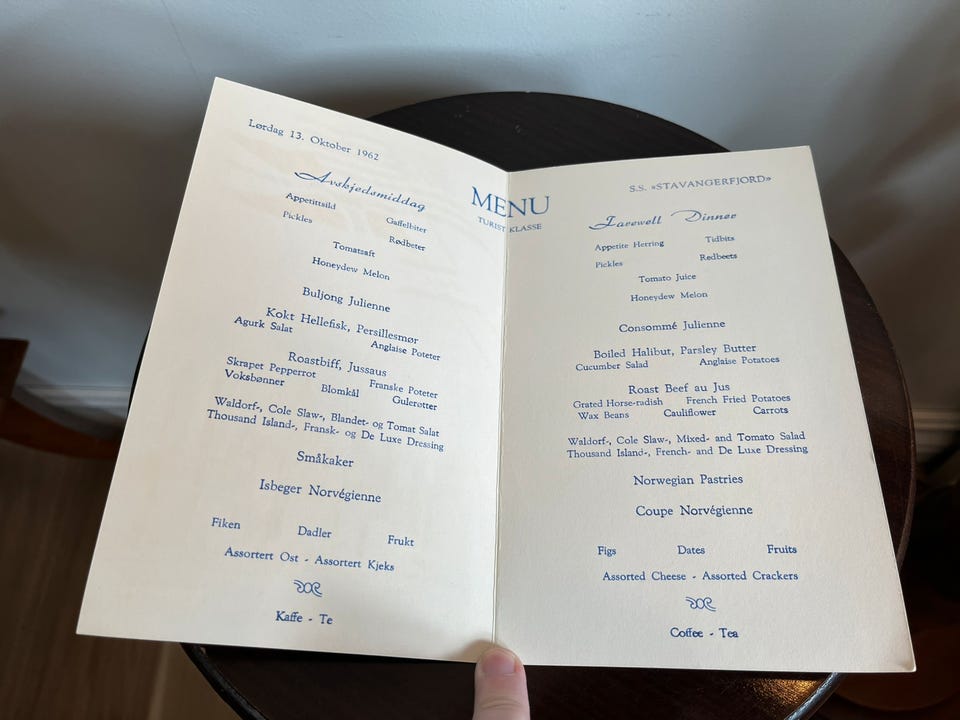 Lørdag 13. Oktober 1962
Avskjedsmiddag
Appetittsild Gaffelbiter
Pickles Rødbeter
Tomatsaft
Honeydew Melon
Buljong Julienne
Kokt Hellefisk, Persillesmør
Agurk Salat Anglaise Poteter
Roastbiff, Jussaus
Skrapet Pepperrot Franske Poteter
Voksbønner Blomkål Gulerøtter
Waldorf-, Cole Slaw-, Blandet- og Tomat Salat
Thousand Island-, Fransk- og De Luxe Dressing
Småkaker
Isbeger Norvégienne
Fiken Dadler Frukt
Assortert Ost - Assortert Kjeks
Kaffe - Te
MENU
TURIST KLASSE
S.S. »STAVANGERFJORD»
Farewell Dinner
Appetite Herring Tidbits
Pickles Redbeets
Tomato Juice
Honeydew Melon
Consommé Julienne
Boiled Halibut, Parsley Butter
Cucumber Salad Anglaise Potatoes
Roast Beef au Jus
Grated Horse-radish French Fried Potatoes
Wax Beans Cauliflower Carrots
Waldorf-, Cole Slaw-, Mixed- and Tomato Salad
Thousand Island-, French- and De Luxe Dressing
Norwegian Pastries
Coupe Norvégienne
Figs Dates Fruits
Assorted Cheese - Assorted Crackers
Coffee - Tea